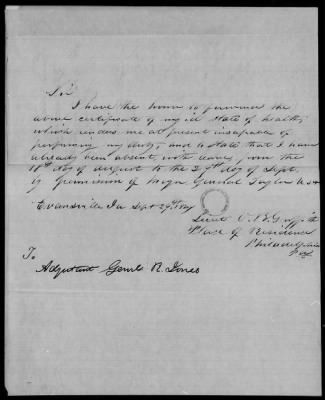 Sir
I have the honor to furnish the
above certificate of my ill state of health,
which renders me at present incapable of
performing my duty, and to state that I have
already been absent, with leave from the
18th day of august to the 29th day of Sept
by permission of Major General Taylor U.S.A
Evansville Ia Sept 29th
Lieut
Place of Residence
Philadelphia
To
Adjutant Genrl R. Jones